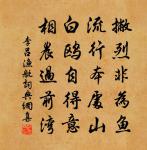 撇烈非為魚
流行本山
白鷗自得意
相過前灣
李呂漁詞集